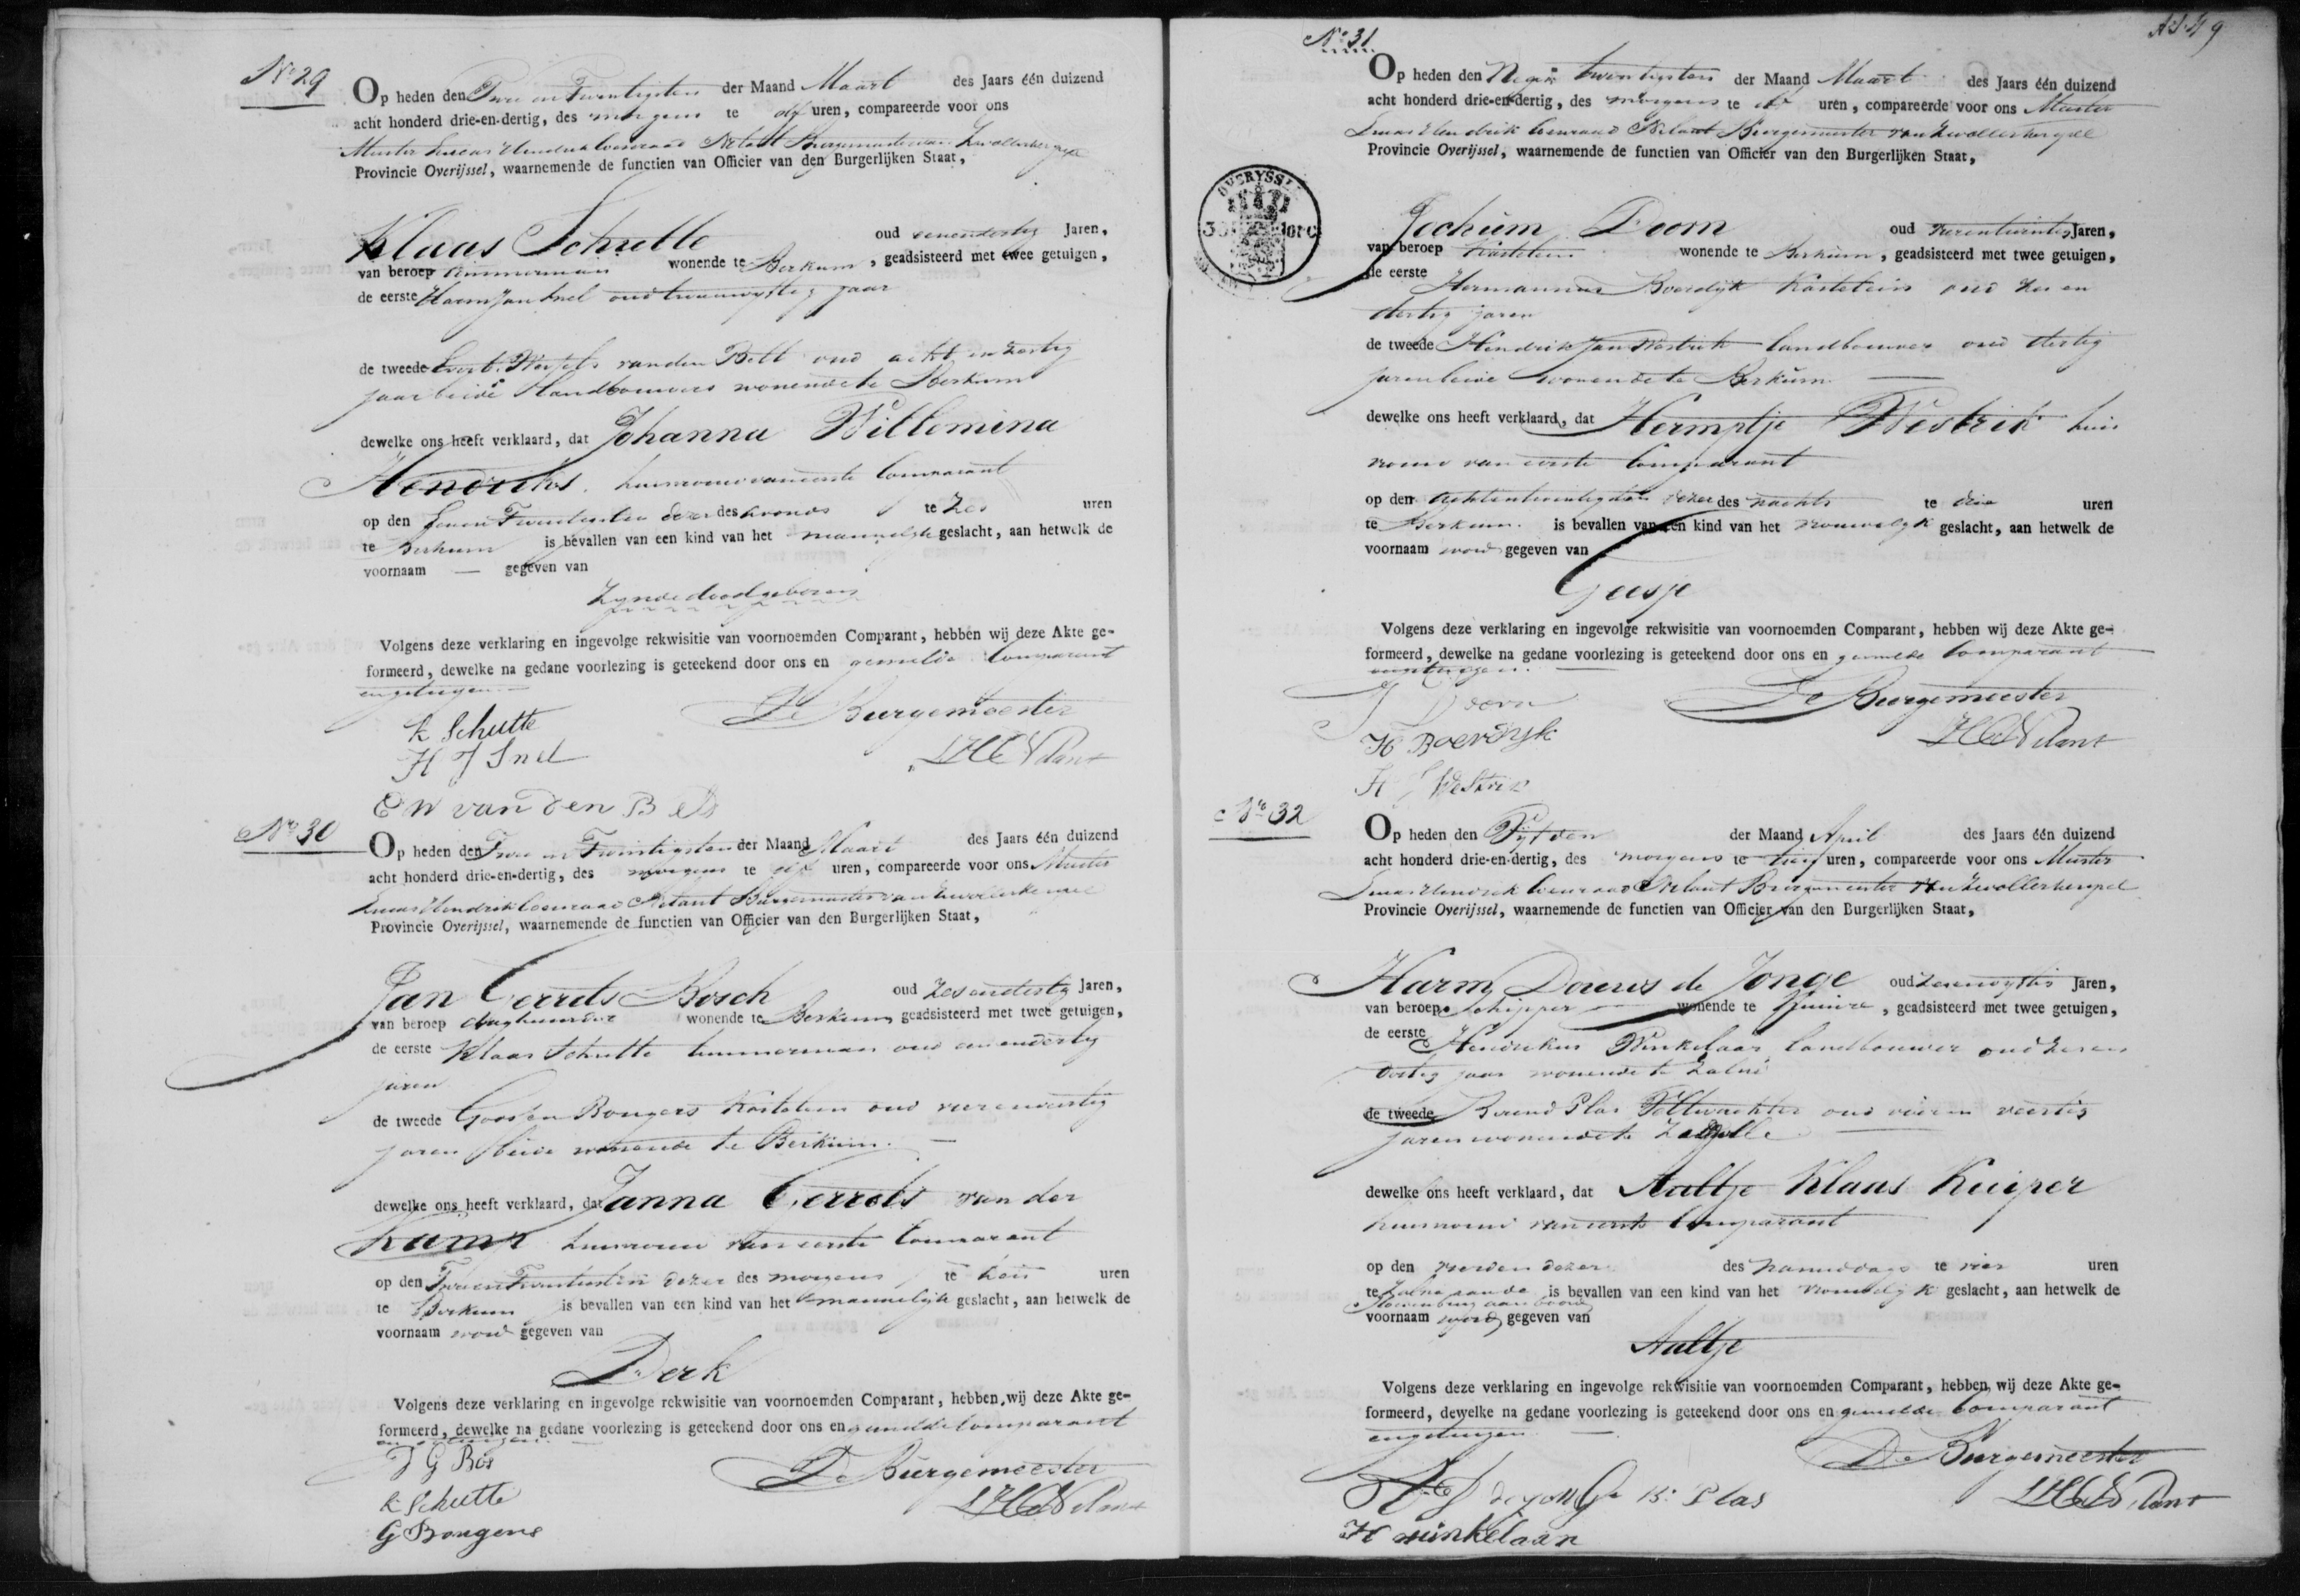 No 29
Op heden den Twee en Twentigsten der Maand Maart des Jaars één duizend
acht honderd drie-en-dertig, des morgens te elf uren, compareerde voor ons
Meester Lucas Hendrik Coenraad Nilant Burgemeester van Zwollerkerspel
Provincie Overijssel, waarnemende de functien van Officier van den Burgerlijken Staat,
Klaas Schutte oud eenendertig Jaren,
van beroep timmerman wonende te Berkum, geadsisteerd met twee getuigen,
de eerste Harm Jan Snel oud tweenvyftig jaar
de tweede Evert Wessels van den Belt oud acht en zestig
jaar beide Landbouwers wonende te Berkum
dewelke ons heeft verklaard, dat Johanna Willemina
Hendriks huisvrouw van eerste Comparant
op den Eenen Twentigsten dezer des avonds te Zes uren
te Berkum is bevallen van een kind van het mannelyk geslacht, aan hetwelk de
voornaam — gegeven van
Zynde doodgeboren
Volgens deze verklaring en ingevolge rekwisitie van voornoemden Comparant, hebben wij deze Akte ge-
formeerd, dewelke na gedane voorlezing is geteekend door ons en gemelde Comparant
en getuigen
De Burgemeester
K Schutte
H J Snel
LHCNilant
E W van den B
No 30
Op heden den Twee en Twintigsten der Maand Maart des Jaars één duizend
acht honderd drie-en-dertig, des morgens te elf uren, compareerde voor ons Meester
Lucas Hendrik Coenraad Nilant Burgemeester van Zwollerkerspel
Provincie Overijssel, waarnemende de functien van Officier van den Burgerlijken Staat,
Jan Gerrets Bosch oud zesendertig Jaren,
van beroep daghuurder wonende te Berkum geadsisteerd met twee getuigen,
de eerste Klaas Schutte timmerman oud eenendertig
jaren
de tweede Goosen Bongers Kastelein oud vierenveertig
jaren beide wonende te Berkum.
dewelke ons heeft verklaard, dat Janna Gerrets van der
Kamp huisvrouw van eerste Comparant
op den Twee en Twentigsten dezer des morgens te uren
te Berkum is bevallen van een kind van het mannelyk geslacht, aan hetwelk de
voornaam word gegeven van
Derk
Volgens deze verklaring en ingevolge rekwisitie van voornoemden Comparant, hebben wij deze Akte ge-
formeerd, dewelke na gedane voorlezing is geteekend door ons en gemelde Comparant
en getuigen
J G Bos
De Burgemeester
K Schutte
LHCNilant
G Bongers
No 31
Op heden den Negen twentigsten der Maand Maart des Jaars één duizend
acht honderd drie-en-dertig, des morgens te elf uren, compareerde voor ons Meester
Lucas Hendrik Coenraad Nilant Burgemeester van Zwollerkerspel
Provincie Overijssel, waarnemende de functien van Officier van den Burgerlijken Staat,
OVERYSSEL
Jochum Doorn oud Jaren,
van beroep Kastelein wonende te Berkum, geadsisteerd met twee getuigen,
de eerste Hermannus Boerdyk Kastelein oud Zes en
dertig jaren
de tweede Hendrik Jan Westrik landbouwer oud dertig
jaren beide wonende te Berkum
dewelke ons heeft verklaard, dat Hermptje Westrik huis
vrouw van eerste Comparant
op den achtentwentigsten dezer des nachts te drie uren
te Berkum is bevallen van een kind van het vrouwelyk geslacht, aan hetwelk de
voornaam word gegeven van
Geesje
Volgens deze verklaring en ingevolge rekwisitie van voornoemden Comparant, hebben wij deze Akte ge-
formeerd, dewelke na gedane voorlezing is geteekend door ons en gemelde Comparant
en getuigen.
J Doorn
De Burgemeester
H Boerdyk
LHCNilant
H J Westrik
No 32
Op heden den Vyfden der Maand April des Jaars één duizend
acht honderd drie-en-dertig, des morgens te tien uren, compareerde voor ons Meester
Lucas Hendrik Coenraad Nilant Burgemeester van Zwollerkerspel
Provincie Overijssel, waarnemende de functien van Officier van den Burgerlijken Staat,
Harm Douwes de Jonge oud Jaren,
van beroep Schipper wonende te Kuinre, geadsisteerd met twee getuigen,
de eerste Hendrikus Winkelaar landbouwer oud zeven
dertig jaar wonende te Zalné
de tweede Berend Plas Veldwachter oud vieren veertig
jaren wonende te Zwolle
dewelke ons heeft verklaard, dat Aaltje Klaas Kuiper
huisvrouw van eerste Comparant
op den vierden dezer des namiddags te vier uren
te Zalné aan de is bevallen van een kind van het vrouwelyk geslacht, aan hetwelk de
aan boord
voornaam word gegeven van
Aaltje
Volgens deze verklaring en ingevolge rekwisitie van voornoemden Comparant, hebben wij deze Akte ge-
formeerd, dewelke na gedane voorlezing is geteekend door ons en gemelde Comparant
en getuigen
De Burgemeester
H D de Jonge B: Plas
LHCNilant
H winkelaar